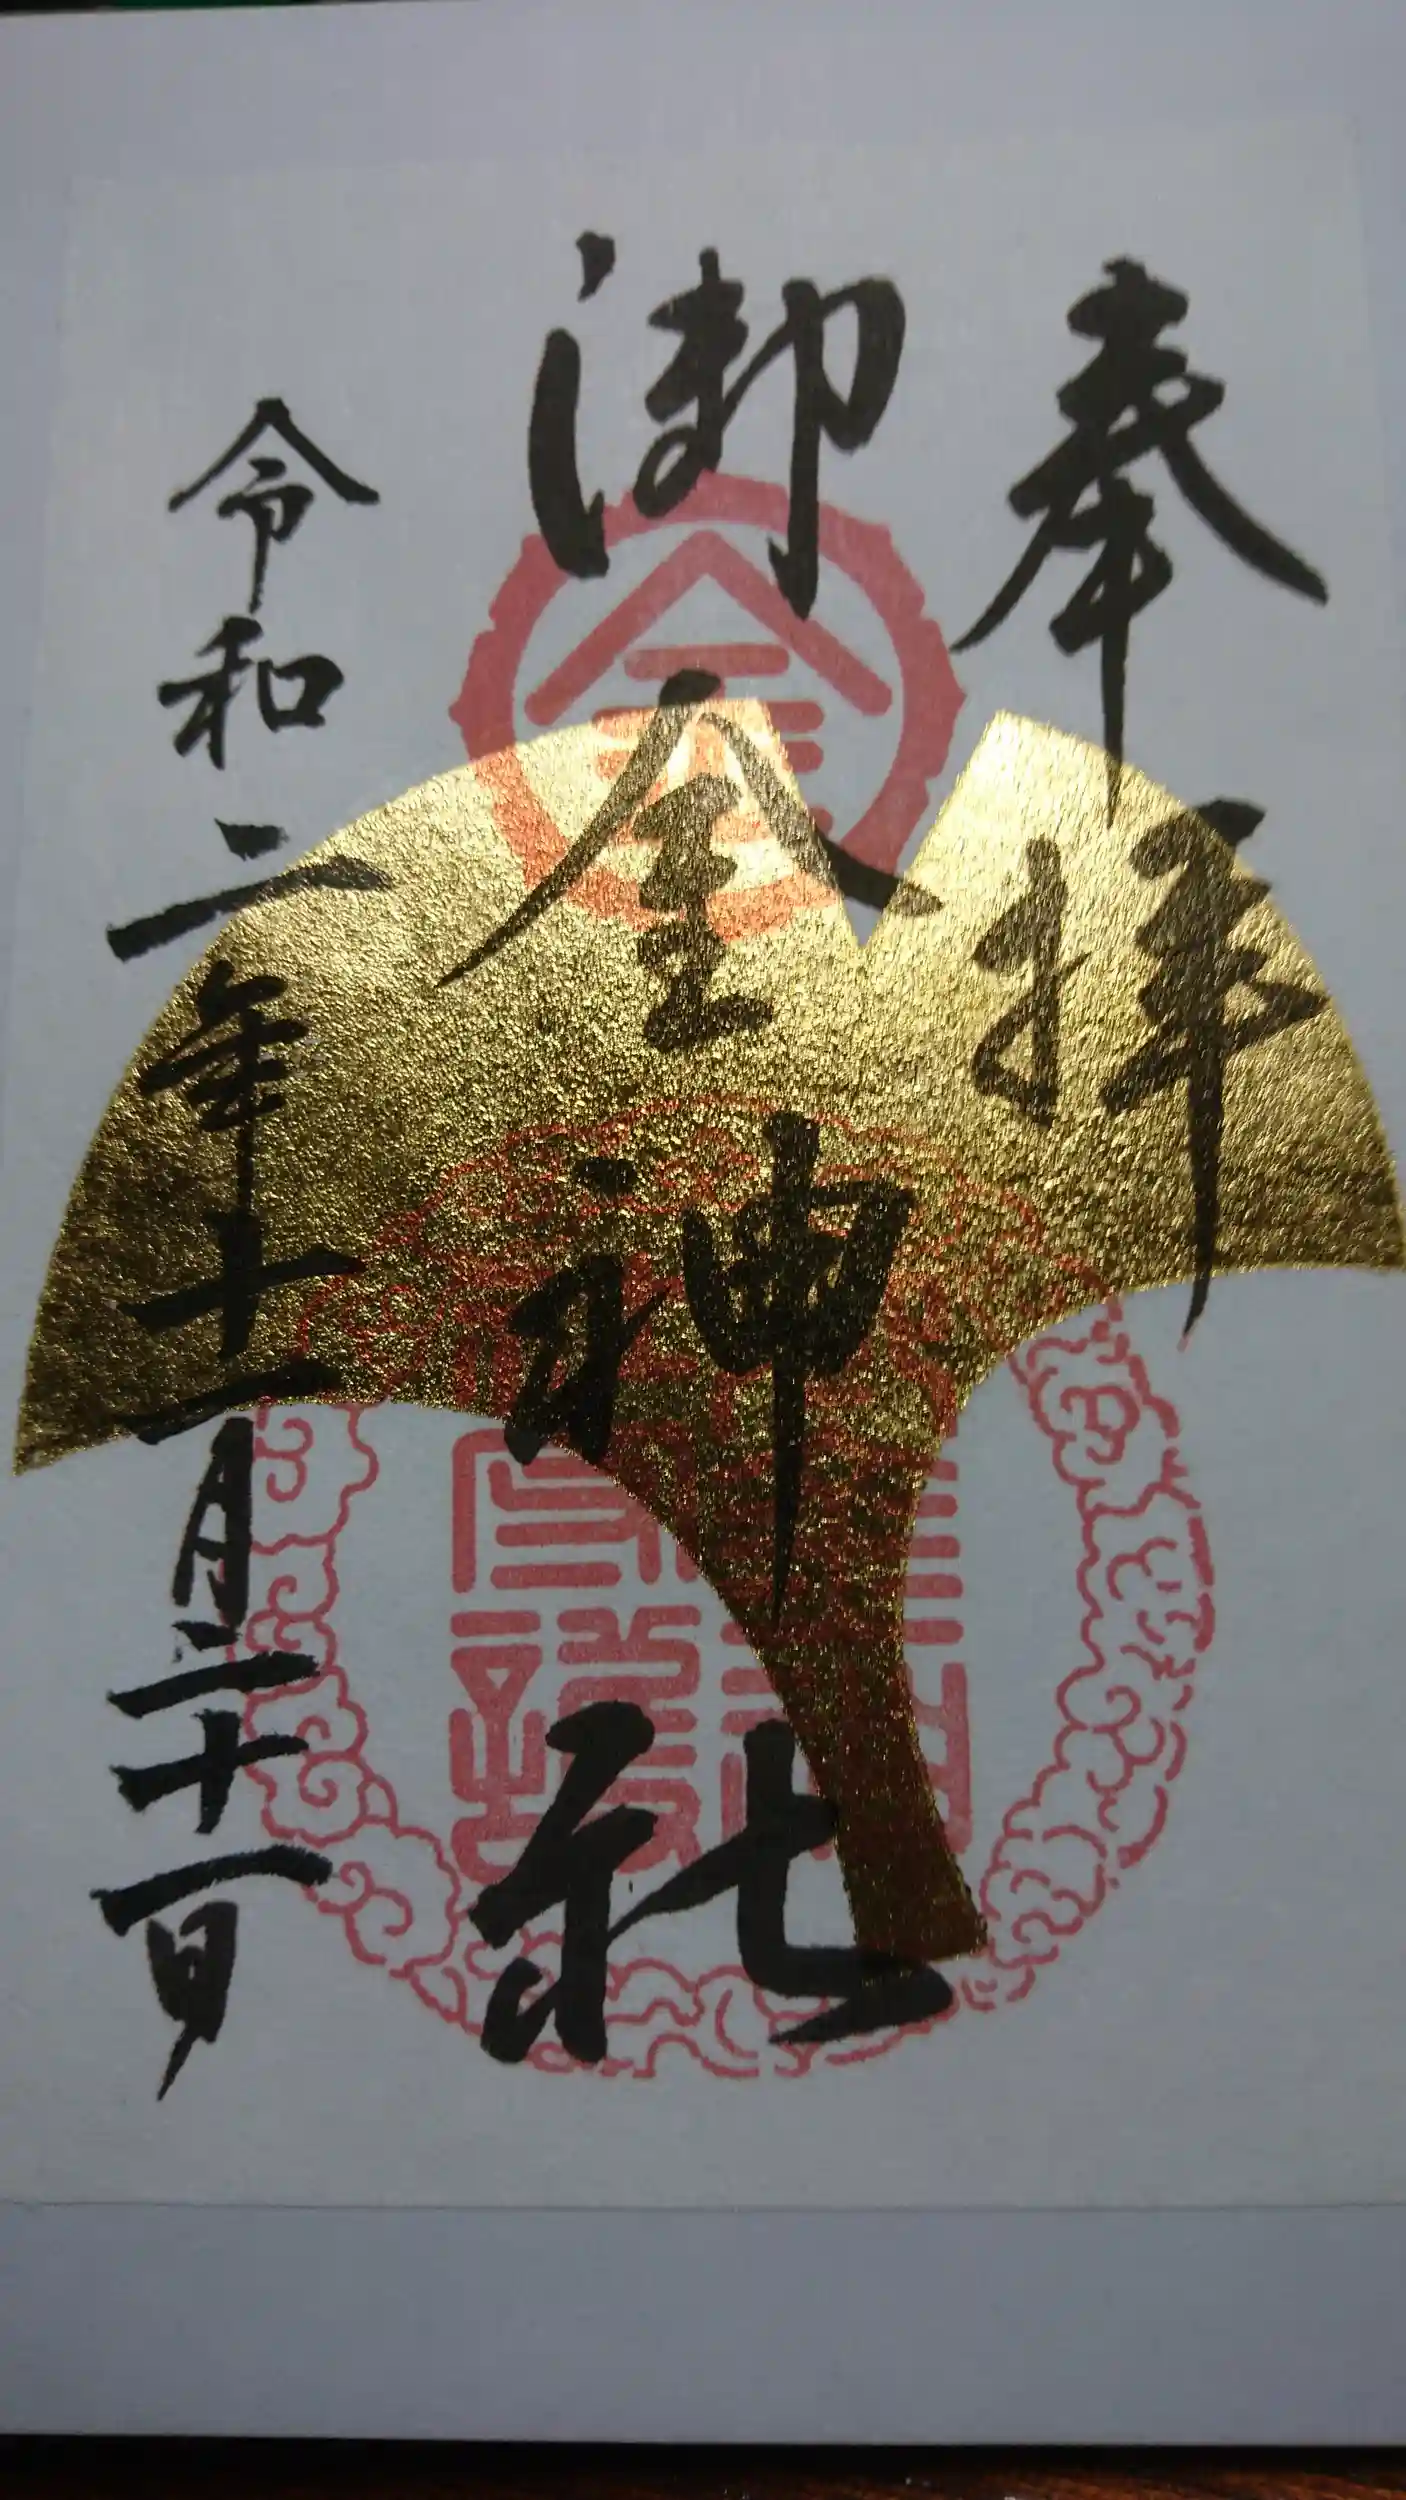 奉拝
御金神社
令和二年十一月二十一日
金